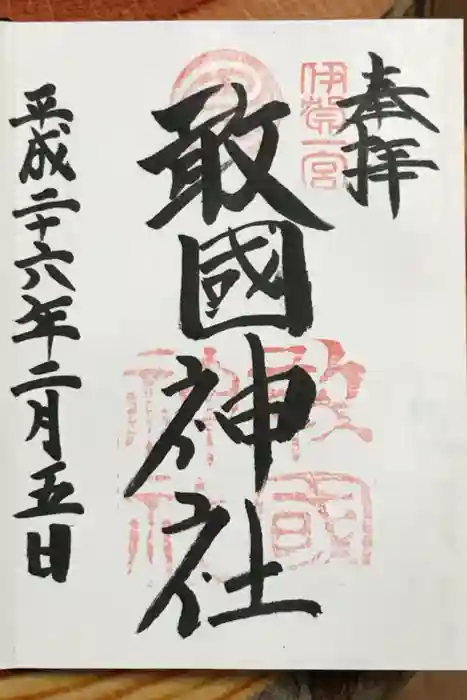 奉拝
伊賀一宮
敢國神社
敢國
神社
平成二十六年二月五日